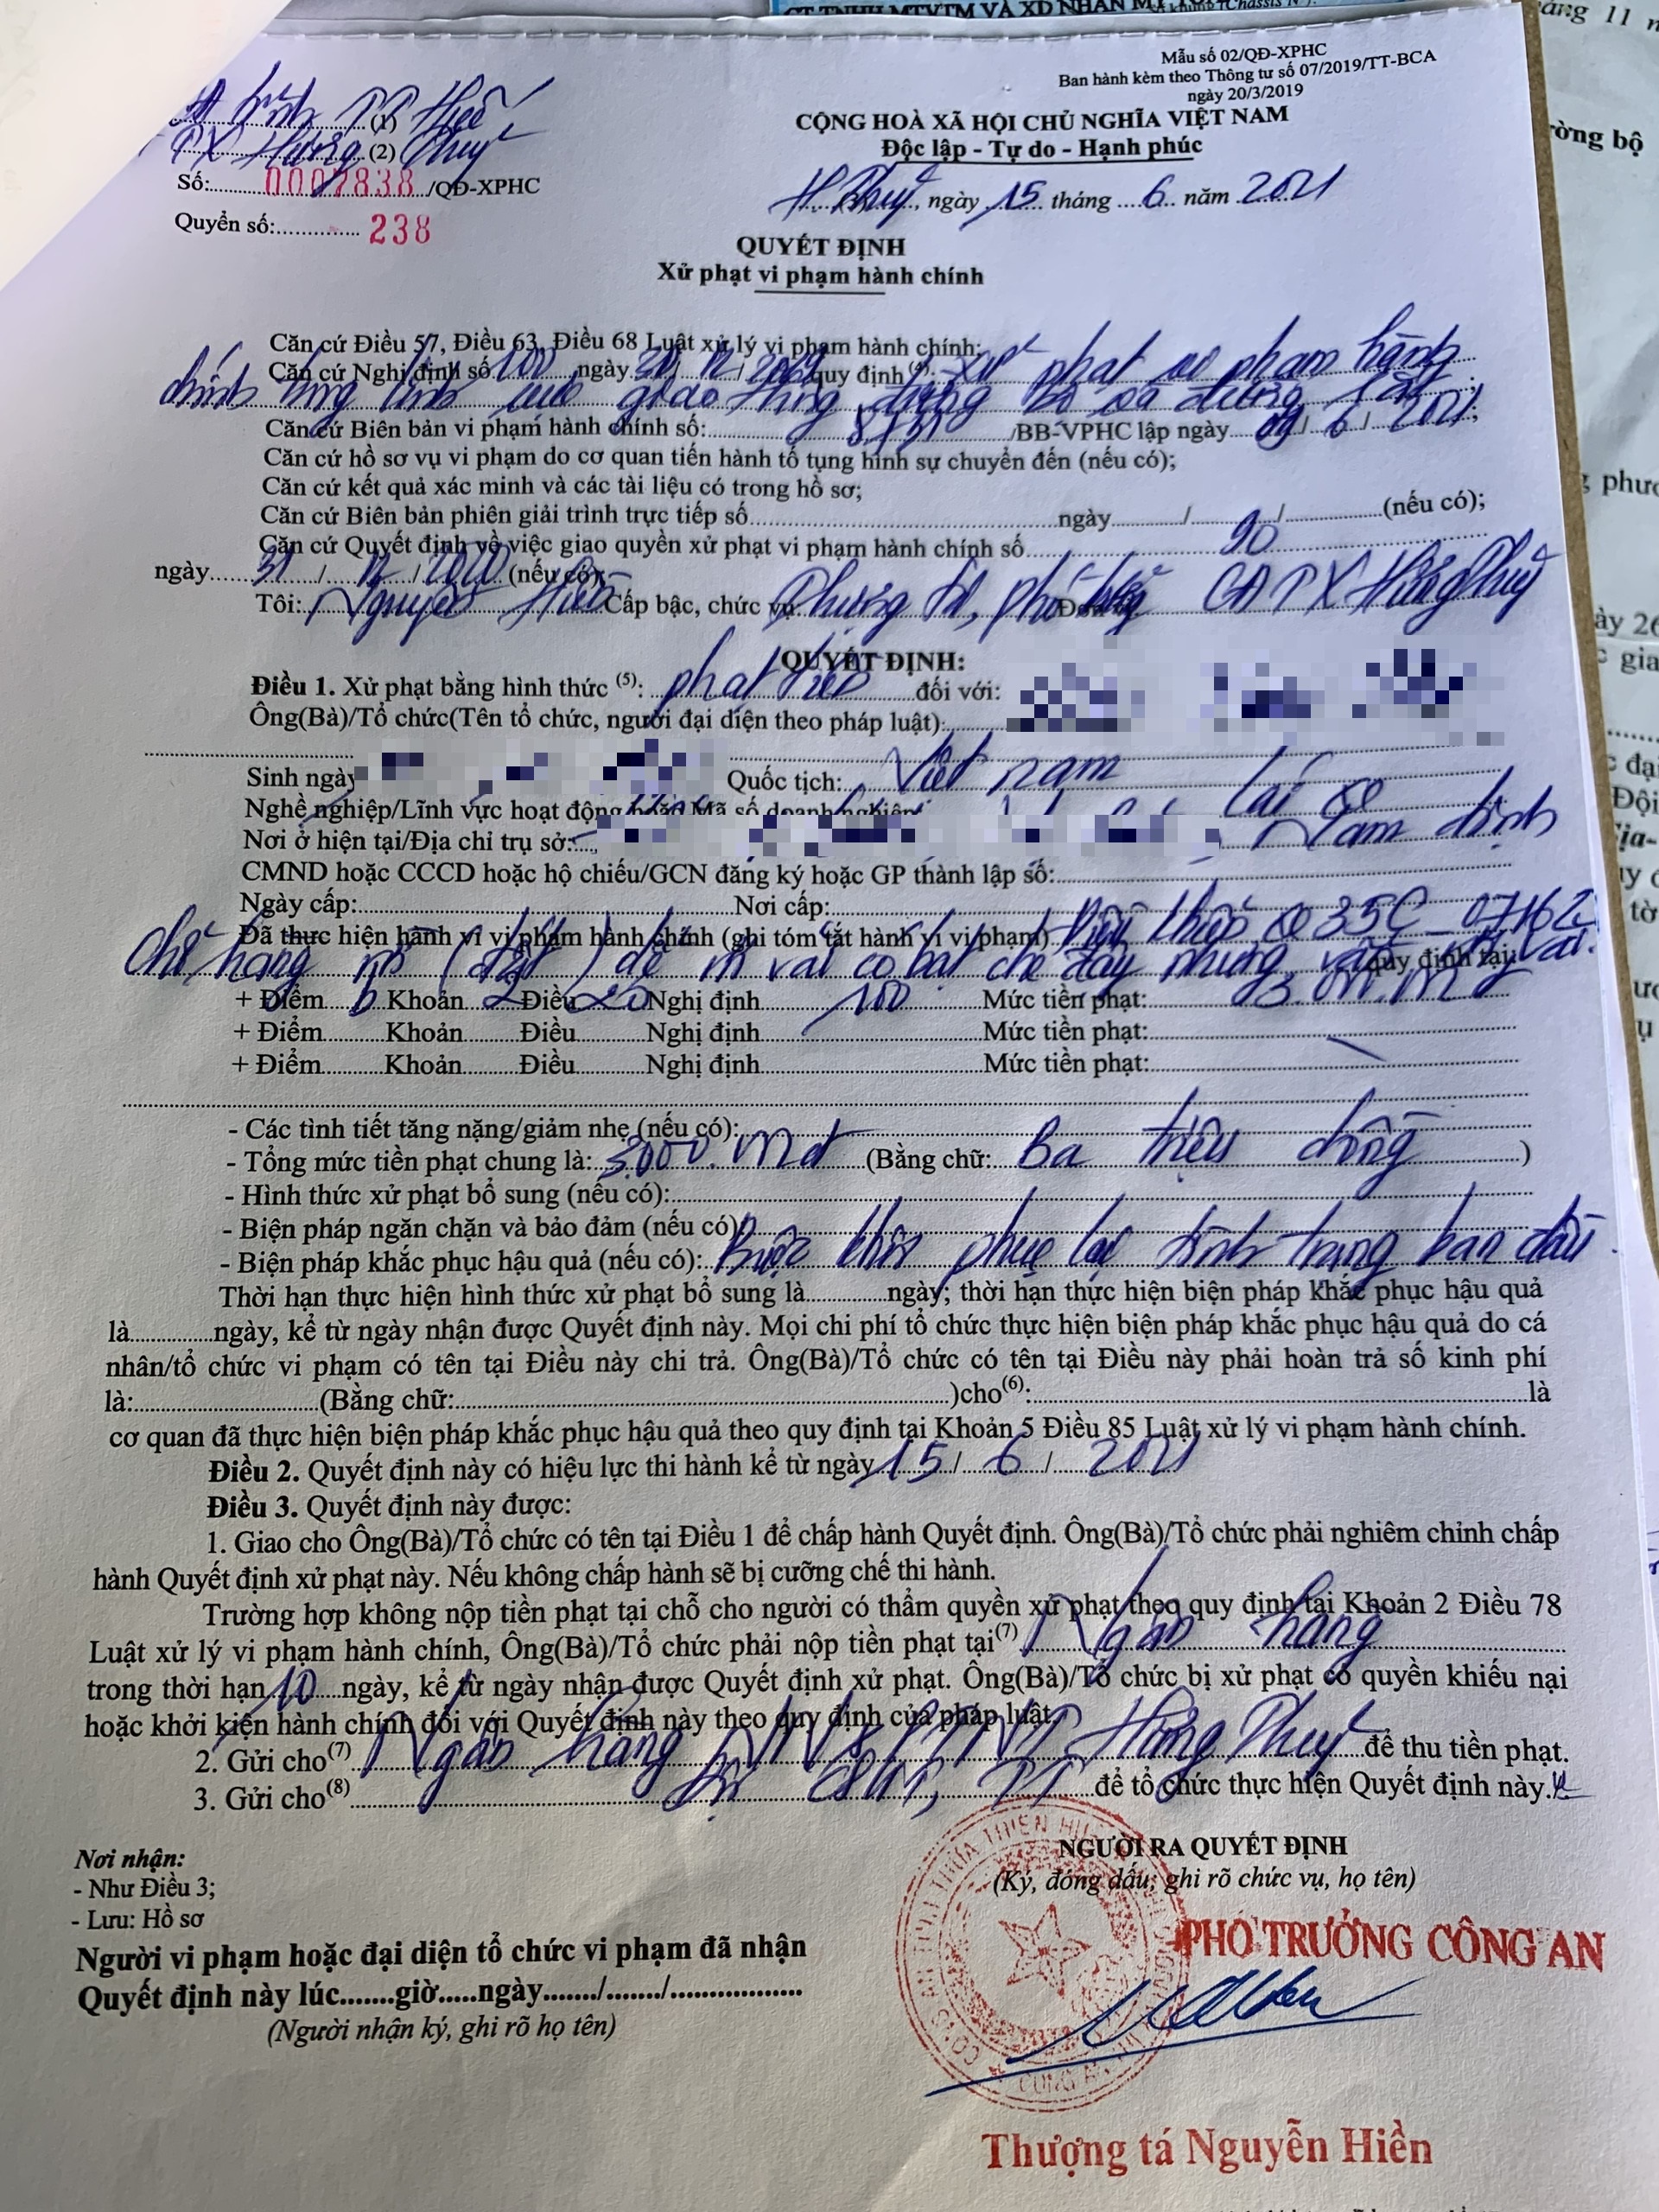 CT TNHH MTVTM VÀ XD NHÂN
Mẫu số 02/QĐ-XPHC
Ban hành kèm theo Thông tư số 07/2019/TT-BCA
ngày 20/3/2019
(1)
CỘNG HOÀ XÃ HỘI CHỦ NGHĨA VIỆT NAM
TX Hương (2) Thuỷ
Độc lập - Tự do - Hạnh phúc
Số: 0007838 /QĐ-XPHC
H. Thuỷ, ngày 15 tháng 6 năm 2021
Quyển số: 238
QUYẾT ĐỊNH
Xử phạt vi phạm hành chính
Căn cứ Điều 57, Điều 63, Điều 68 Luật xử lý vi phạm hành chính;
Căn cứ Nghị định số 100 ngày 30/12/2019 quy định (4): xử phạt vi phạm hành
chính trong lĩnh vực giao thông đường bộ và đường sắt;
Căn cứ Biên bản vi phạm hành chính số: /BB-VPHC lập ngày 09/6/2021;
Căn cứ hồ sơ vụ vi phạm do cơ quan tiến hành tố tụng hình sự chuyển đến (nếu có);
Căn cứ kết quả xác minh và các tài liệu có trong hồ sơ;
Căn cứ Biên bản phiên giải trình trực tiếp số ngày / / (nếu có);
Căn cứ Quyết định về việc giao quyền xử phạt vi phạm hành chính số 90
ngày 31/12/2020 (nếu có);
Tôi: Nguyễn Hiền Cấp bậc, chức vụ: Thượng tá, phó trưởng CATX Hương Thuỷ
QUYẾT ĐỊNH:
Điều 1. Xử phạt bằng hình thức (5): phạt tiền đối với:
Ông(Bà)/Tổ chức(Tên tổ chức, người đại diện theo pháp luật):
Sinh ngày Quốc tịch: Việt nam
Nghề nghiệp/Lĩnh vực hoạt động hoặc Mã số doanh nghiệp: lái xe
Nơi ở hiện tại/Địa chỉ trụ sở: Nam định
CMND hoặc CCCD hoặc hộ chiếu/GCN đăng ký hoặc GP thành lập số:
Ngày cấp: Nơi cấp:
Đã thực hiện hành vi vi phạm hành chính (ghi tóm tắt hành vi vi phạm) Điều khiển xe 35C-07162
chở hàng rời (đất) để rơi vãi có bạt che đậy nhưng vẫn rơi vãi. quy định tại:
+ Điểm b Khoản 2 Điều 20 Nghị định 100 Mức tiền phạt:
+ Điểm Khoản Điều Nghị định Mức tiền phạt:
+ Điểm Khoản Điều Nghị định Mức tiền phạt:
- Các tình tiết tăng nặng/giảm nhẹ (nếu có):
- Tổng mức tiền phạt chung là: 3.000.000đ (Bằng chữ: Ba triệu đồng )
- Hình thức xử phạt bổ sung (nếu có):
- Biện pháp ngăn chặn và bảo đảm (nếu có):
- Biện pháp khắc phục hậu quả (nếu có): Buộc khôi phục lại tình trạng ban đầu.
Thời hạn thực hiện hình thức xử phạt bổ sung là ngày; thời hạn thực hiện biện pháp khắc phục hậu quả
là ngày, kể từ ngày nhận được Quyết định này. Mọi chi phí tổ chức thực hiện biện pháp khắc phục hậu quả do cá
nhân/tổ chức vi phạm có tên tại Điều này chi trả. Ông(Bà)/Tổ chức có tên tại Điều này phải hoàn trả số kinh phí
là: (Bằng chữ: )cho(6): là
cơ quan đã thực hiện biện pháp khắc phục hậu quả theo quy định tại Khoản 5 Điều 85 Luật xử lý vi phạm hành chính.
Điều 2. Quyết định này có hiệu lực thi hành kể từ ngày 15/6/2021
Điều 3. Quyết định này được:
1. Giao cho Ông(Bà)/Tổ chức có tên tại Điều 1 để chấp hành Quyết định. Ông(Bà)/Tổ chức phải nghiêm chỉnh chấp
hành Quyết định xử phạt này. Nếu không chấp hành sẽ bị cưỡng chế thi hành.
Trường hợp không nộp tiền phạt tại chỗ cho người có thẩm quyền xử phạt theo quy định tại Khoản 2 Điều 78
Luật xử lý vi phạm hành chính, Ông(Bà)/Tổ chức phải nộp tiền phạt tại(7) Ngân hàng
trong thời hạn 10 ngày, kể từ ngày nhận được Quyết định xử phạt. Ông(Bà)/Tổ chức bị xử phạt có quyền khiếu nại
hoặc khởi kiện hành chính đối với Quyết định này theo quy định của pháp luật.
2. Gửi cho(7) Ngân hàng NN&PTNT Hương Thuỷ để thu tiền phạt.
3. Gửi cho(8) để tổ chức thực hiện Quyết định này.
Nơi nhận:
- Như Điều 3;
- Lưu: Hồ sơ
NGƯỜI RA QUYẾT ĐỊNH
(Ký, đóng dấu, ghi rõ chức vụ, họ tên)
PHÓ TRƯỞNG CÔNG AN
Người vi phạm hoặc đại diện tổ chức vi phạm đã nhận
Quyết định này lúc.......giờ.....ngày......./......./.................
(Người nhận ký, ghi rõ họ tên)
Thượng tá Nguyễn Hiền